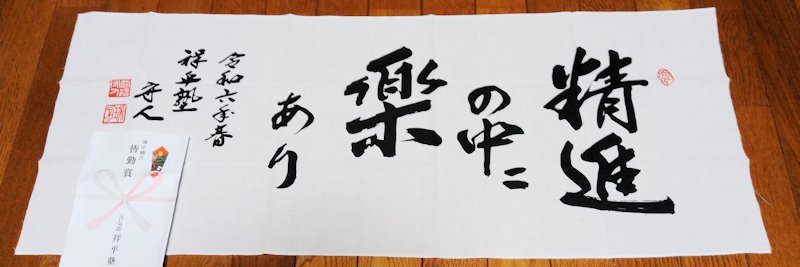 精進
の中に
楽
あり
令和六年春
祥平塾
守人
皆勤賞
祥平塾